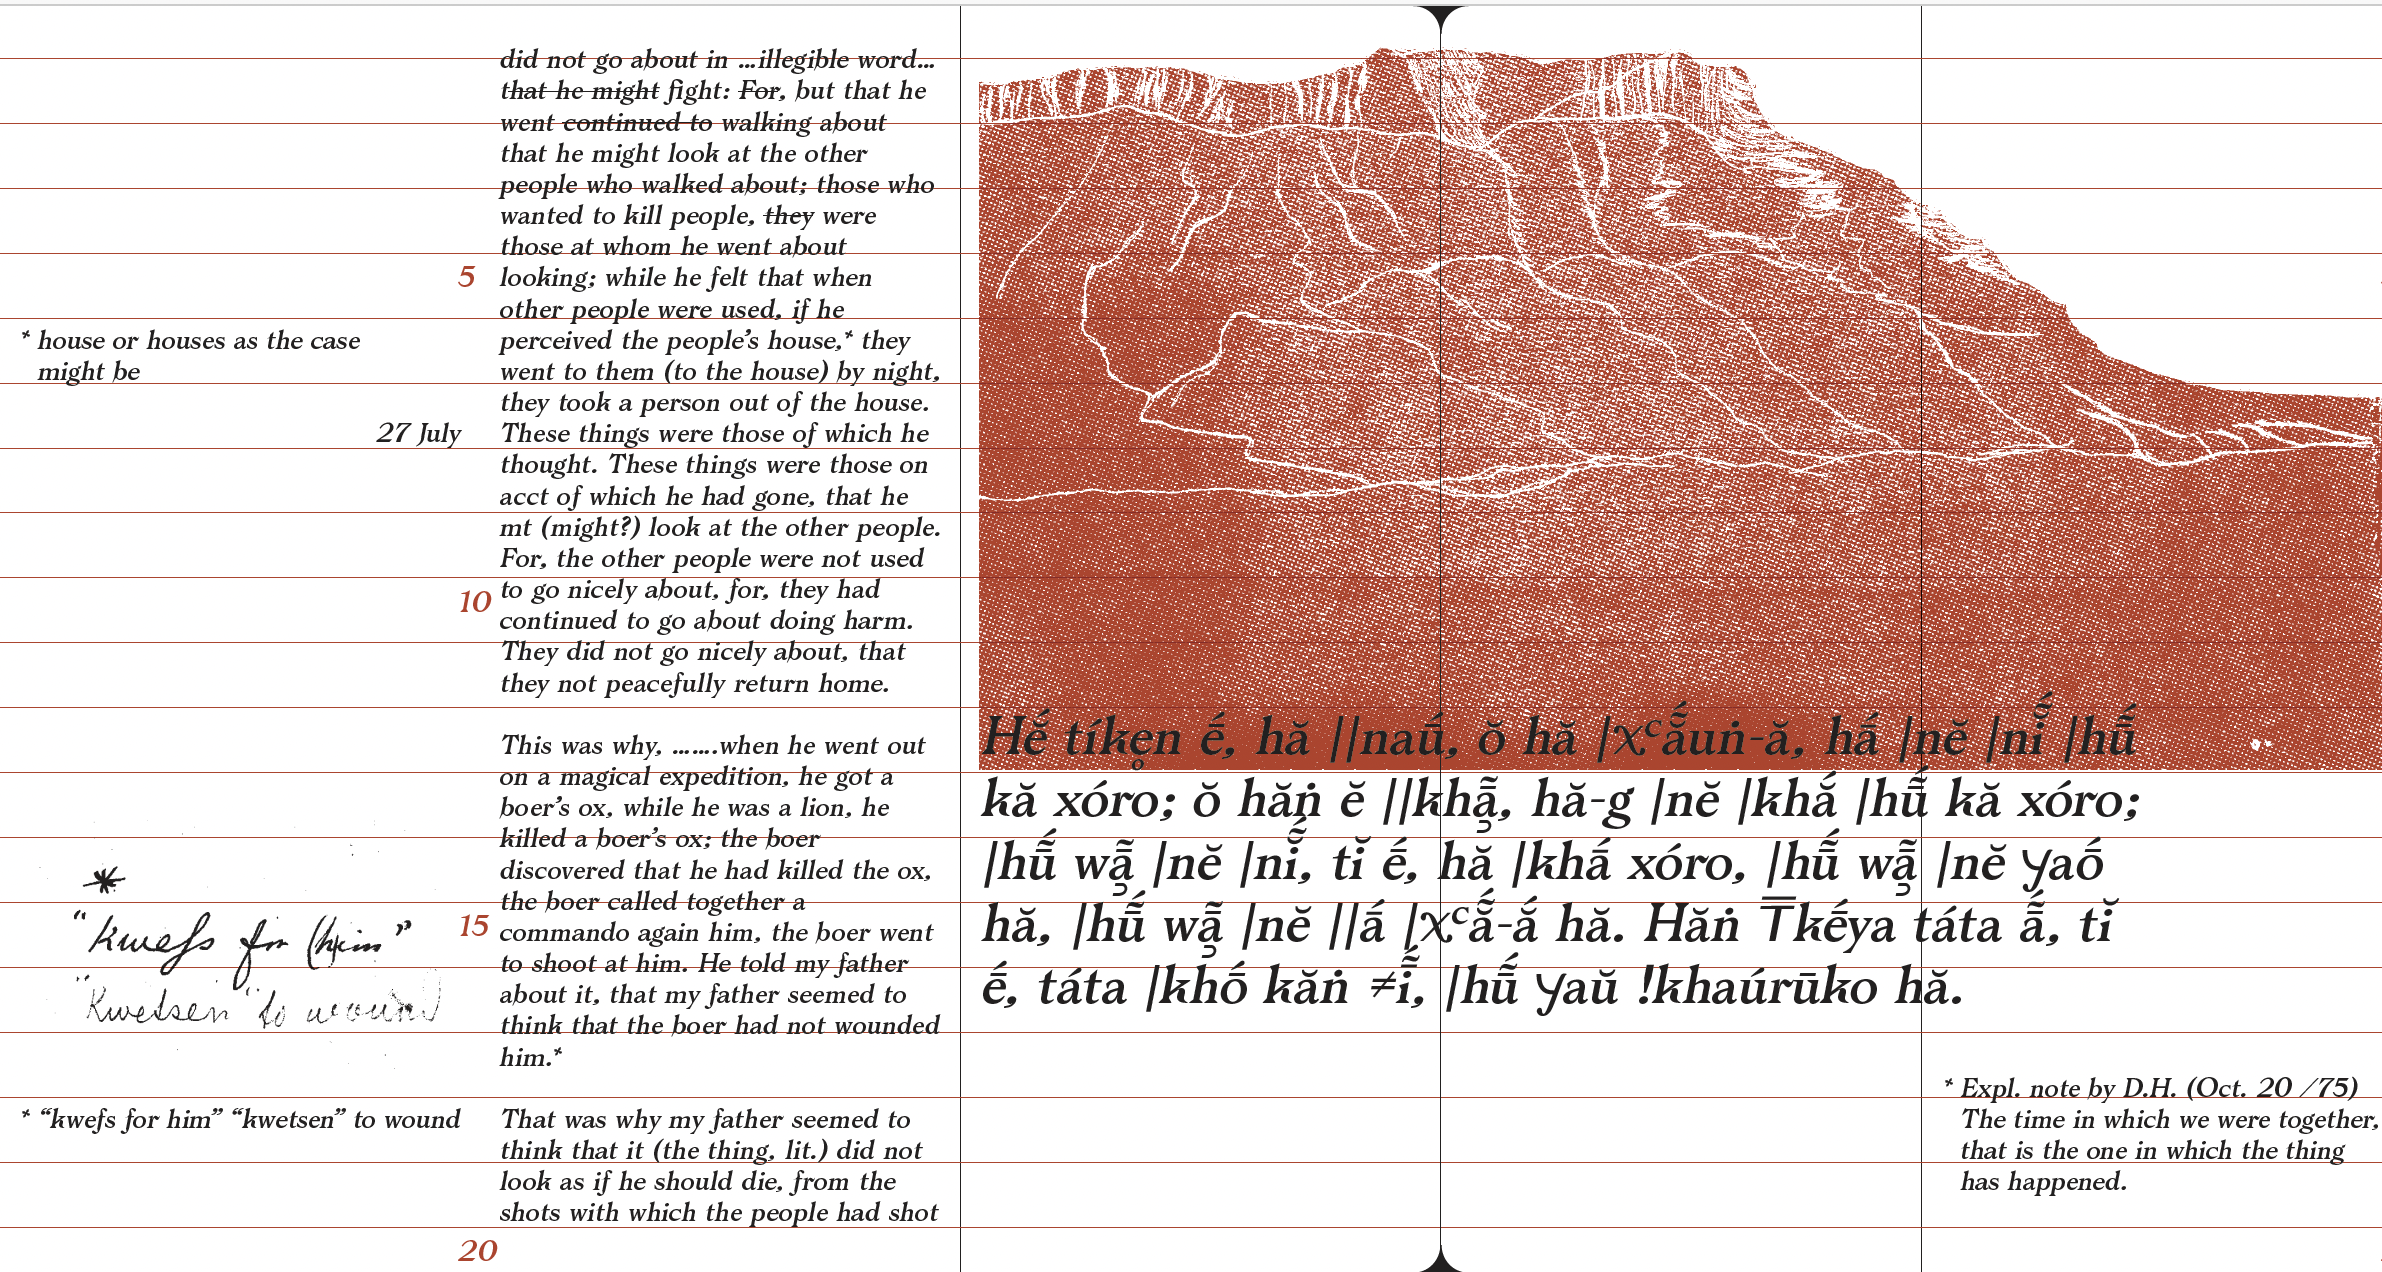 did not go about in ...illegible word...
that he might fight: For, but that he
went continued to walking about
that he might look at the other
people who walked about; those who
wanted to kill people, they were
those at whom he went about
5
looking; while he felt that when
other people were used, if he
* house or houses as the case
might be
perceived the people’s house,* they
went to them (to the house) by night,
they took a person out of the house.
27 July
These things were those of which he
thought. These things were those on
acct of which he had gone, that he
mt (might?) look at the other people.
For, the other people were not used
10
to go nicely about, for, they had
continued to go about doing harm.
They did not go nicely about, that
they not peacefully return home.
This was why, ........when he went out
on a magical expedition, he got a
boer’s ox, while he was a lion, he
killed a boer’s ox; the boer
discovered that he had killed the ox,
the boer called together a
15
commando again him, the boer went
to shoot at him. He told my father
about it, that my father seemed to
think that the boer had not wounded
him.*
*
“kwefs for (him”
“Kwetsen” to wound)
* “kwefs for him” “kwetsen” to wound
That was why my father seemed to
think that it (the thing, lit.) did not
look as if he should die, from the
shots with which the people had shot
20
Hĕ́ tíkẹn ḗ, hă ||naū́, ŏ hă |χᶜā̆́uṅ-ă, hā́ |nĕ |nī̆́ |hū̃́
kă xóro; ŏ hăṅ ĕ ||khã̄, hă-g |nĕ |khắ |hū̃́ kă xóro;
|hū̃́ wã̄ |nĕ |nī̃́, tĭ ḗ, hă |khā́ xóro, |hū̃́ wã̄ |nĕ ꭚaṓ
hă, |hū̃́ wã̄ |nĕ ||ā́ |χᶜā̃́-ắ hă. Hăṅ T̿kḗya táta ā̃́, tĭ
ḗ, táta |khṓ kăṅ ≠ī̃́, |hū̃́ ꭚaŭ !khaúrūko hă.
* Expl. note by D.H. (Oct. 20 /75)
The time in which we were together,
that is the one in which the thing
has happened.